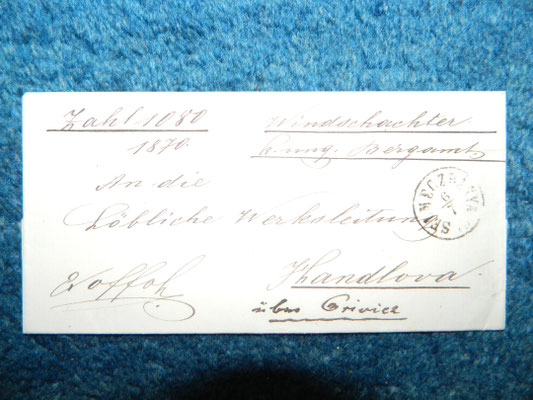 Zahl 1080
1870.
Windschachter
k. ung. Bergamt
An die
Löbliche Werksleitung
Handlova
über Privicz